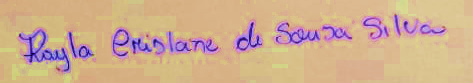 Rayla Crislane de Sousa Silva